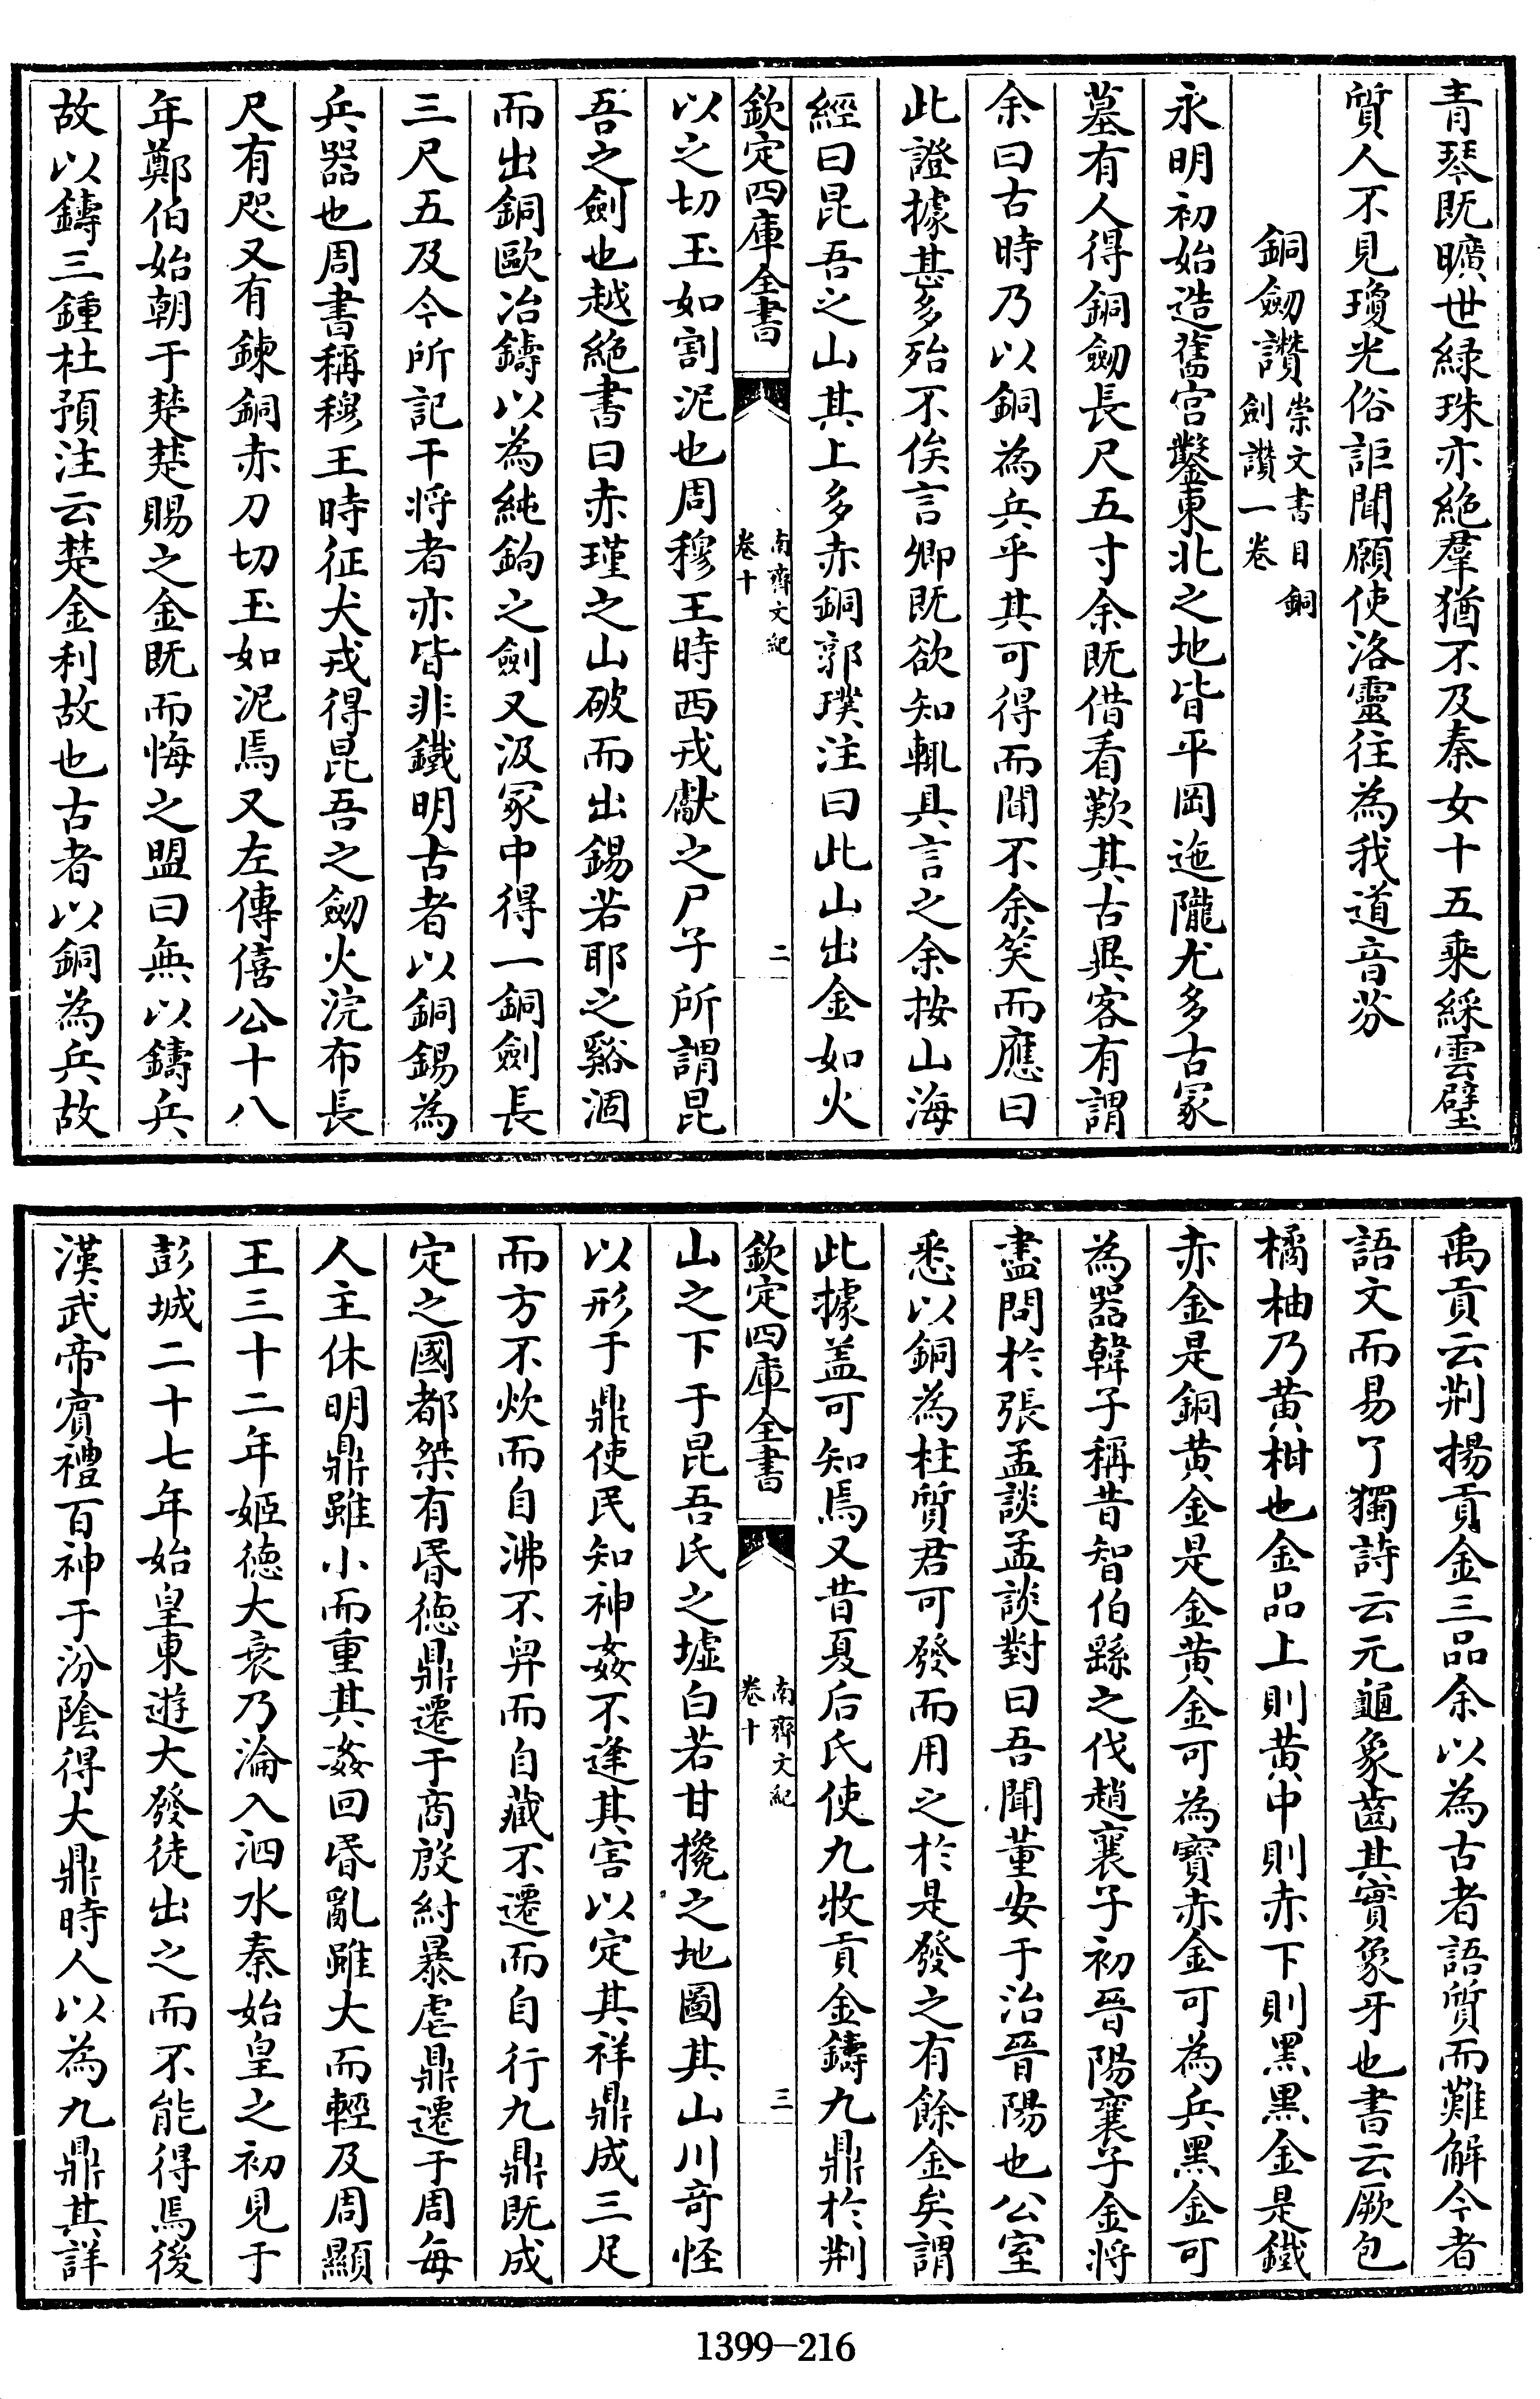 青琴既曠世緑珠亦絶羣猶不及秦女十五乘綵雲璧
質人不見瓊光俗詎聞願使洛靈往為我道音芬
銅劒讚崇文書目銅
劍讚一卷
永明初始造舊宫鑿東北之地皆平岡迤隴尤多古冢
墓有人得銅劒長尺五寸余既借看歎其古異客有謂
余曰古時乃以銅為兵乎其可得而聞不余笑而應曰
此證據甚多殆不俟言卿既欲知輒具言之余按山海
經曰昆吾之山其上多赤銅郭璞注曰此山出金如火
欽定四庫全書
南齊文紀
卷十
二
以之切玉如割泥也周穆王時西戎獻之尸子所謂昆
吾之劍也越絶書曰赤瑾之山破而出錫若耶之谿涸
而出銅歐冶鑄以為純鉤之劍又汲冢中得一銅劍長
三尺五及今所記干将者亦皆非鐵明古者以銅錫為
兵器也周書稱穆王時征犬戎得昆吾之劒火浣布長
尺有咫又有鍊銅赤刀切玉如泥焉又左傳僖公十八
年鄭伯始朝于楚楚賜之金既而悔之盟曰無以鑄兵
故以鑄三鍾杜預注云楚金利故也古者以銅為兵故
禹貢云荆揚貢金三品余以為古者語質而難解今者
語文而易了獨詩云元龜象齒其實象牙也書云厥包
橘柚乃黄柑也金品上則黄中則赤下則黑黑金是鐵
赤金是銅黄金是金黄金可為寳赤金可為兵黑金可
為器韓子稱昔智伯繇之伐趙襄子初晉陽襄子金将
盡問於張孟談孟談對曰吾聞董安于治晉陽也公室
悉以銅為柱質君可發而用之於是發之有餘金矣謂
此據盖可知焉又昔夏后氏使九牧貢金鑄九鼎於荆
欽定四庫全書
南齊文紀
卷十
三
山之下于昆吾氏之墟白若甘攙之地圖其山川竒怪
以形于鼎使民知神姦不逢其害以定其祥鼎成三足
而方不炊而自沸不舁而自藏不遷而自行九鼎既成
定之國都桀有昬徳鼎遷于商殷紂暴虐鼎遷于周每
人主休明鼎雖小而重其姦回昬亂雖大而輕及周顯
王三十二年姬徳大衰乃淪入泗水秦始皇之初見于
彭城二十七年始皇東遊大發徒出之而不能得焉後
漢武帝賓禮百神于汾陰得大鼎時人以為九鼎其詳
1399-216